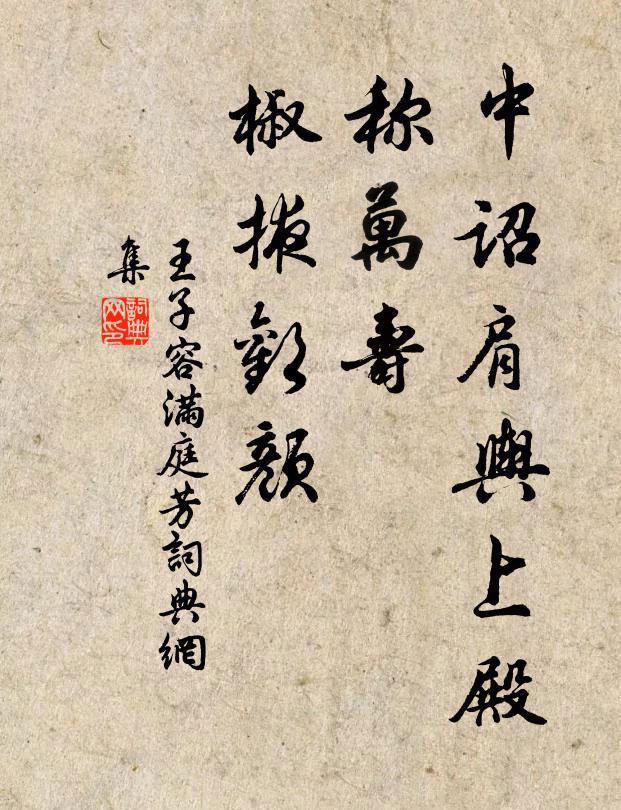 中詔肩輿上殿
称萬壽
椒掖歡顏
王子容滿庭芳詞典網
集
詞典网印